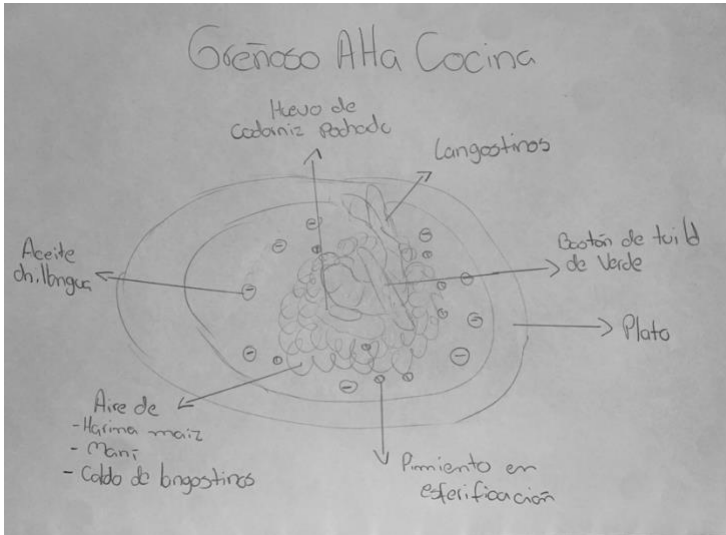 Greñoso Alta Cocina
Huevo de
Codorniz Pochado
Langostinos
Aceite
chillangua
Bastón de tuil
de Verde
Plato
Aire de
- Harina maiz
- Maní
- Caldo de langostinos
Pimiento en
esferificación